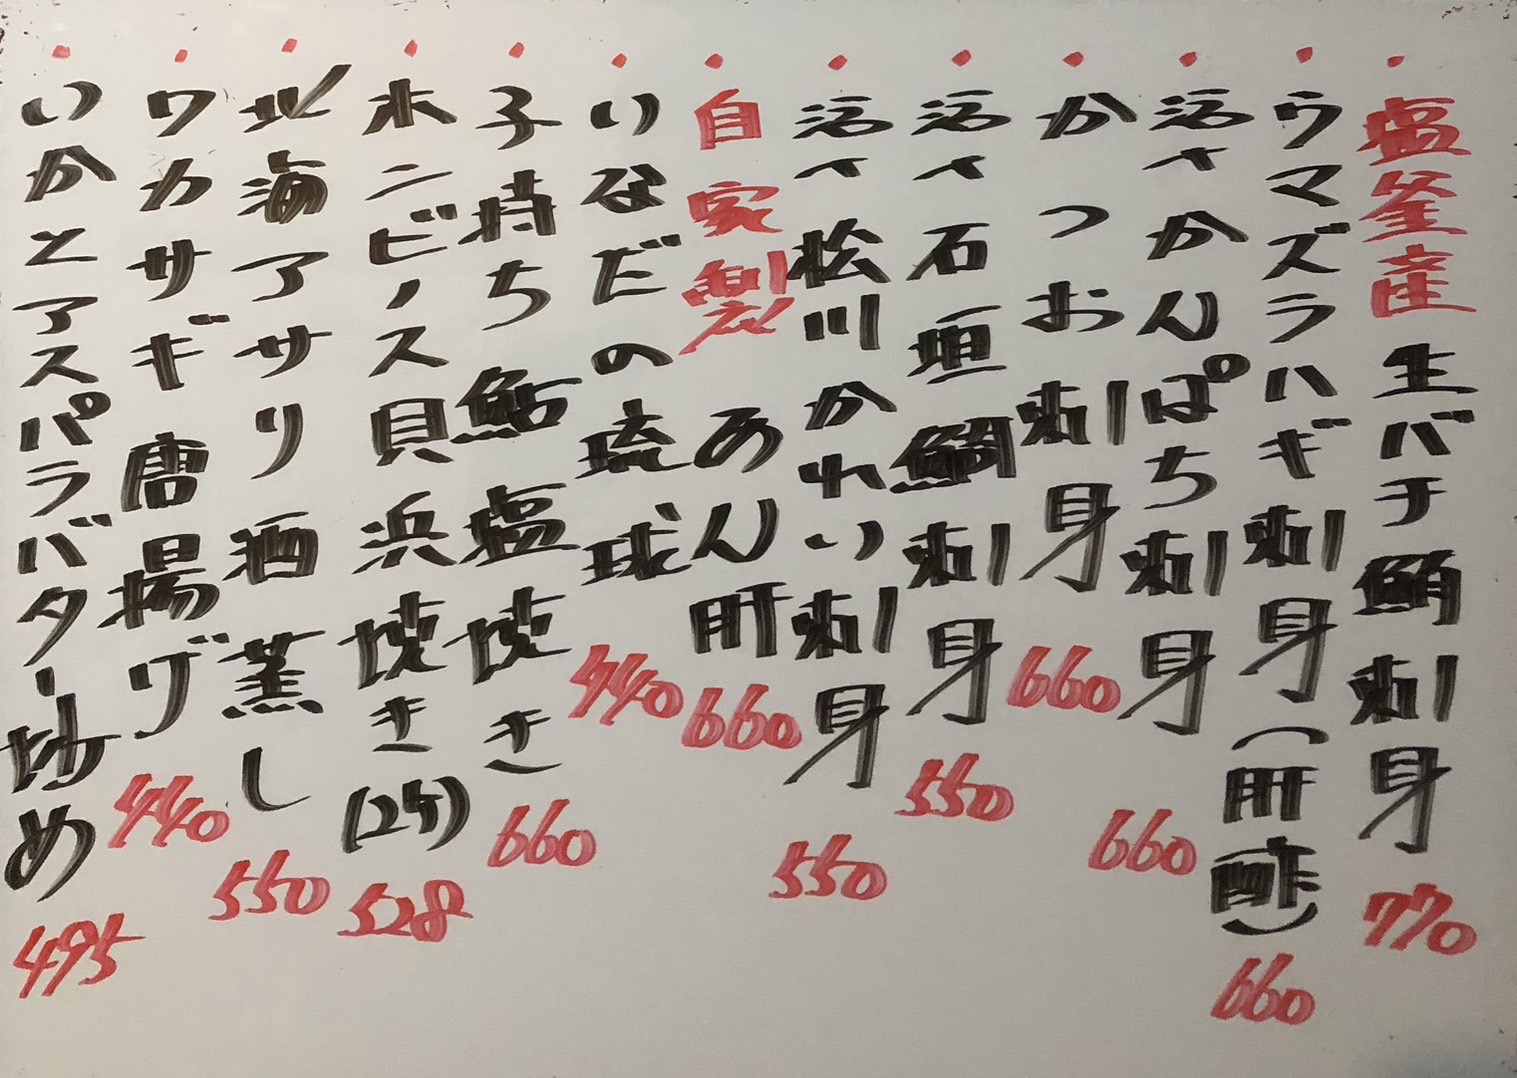 ・塩釜産 生バチ鮪刺身 770
・ウマズラハギ刺身(肝酢) 660
・活〆かんぱち刺身 660
・かつお刺身 660
・活〆石垣鯛刺身 550
・活〆松川かれい刺身 550
・自家製 あん肝 660
・いなだの琉球 440
・子持ち鮎塩焼き 660
・ホンビノス貝浜焼き(2ケ) 528
・北海アサリ酒蒸し 550
・ワカサギ唐揚げ 440
・いかとアスパラバター炒め 495